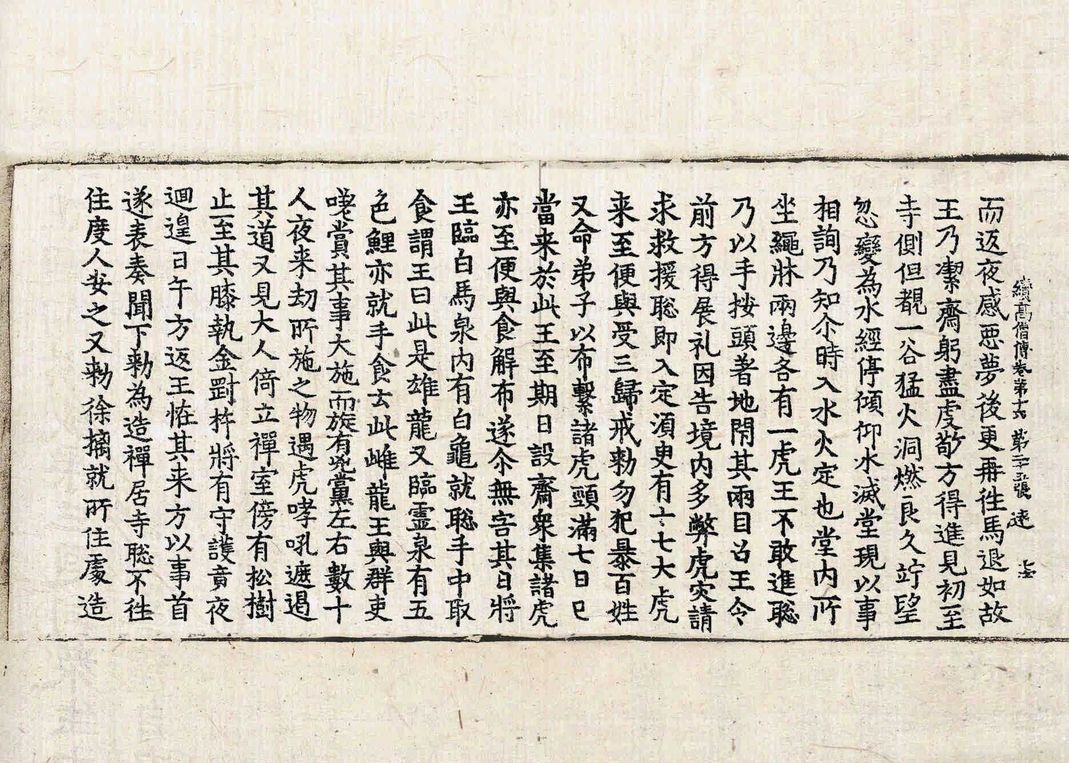 續高僧傳卷第十六 第二十五張 達
而返夜感惡夢後更再往馬退如故
王乃潔齋躬盡虔敬方得進見初至
寺側但覩一谷猛火洞燃良久竚望
忽變為水經停傾仰水滅堂現以事
相詢乃知尒時入水火定也堂內所
坐繩牀兩邊各有一虎王不敢進聡
乃以手按頭著地閇其兩目召王令
前方得展礼因告境內多弊虎灾請
求救援聡即入定須臾有十七大虎
来至便與受三歸戒勑勿犯暴百姓
又命弟子以布繫諸虎頸滿七日已
當来於此王至期日設齋衆集諸虎
亦至便與食解布遂尒無害其日將
王臨白馬泉內有白龜就聡手中取
食謂王曰此是雄龍又臨靈泉有五
色鯉亦就手食云此雌龍王與群吏
嗟賞其事大施而旋有兇黨左右數十
人夜来刧所施之物遇虎哮吼遮遏
其道又見大人倚立禪室傍有松樹
止至其膝執金剛杵將有守護竟夜
迴遑日午方返王怪其来方以事首
遂表奏聞下勑為造禪居寺聡不往
住度人安之又勑徐摛就所住處造